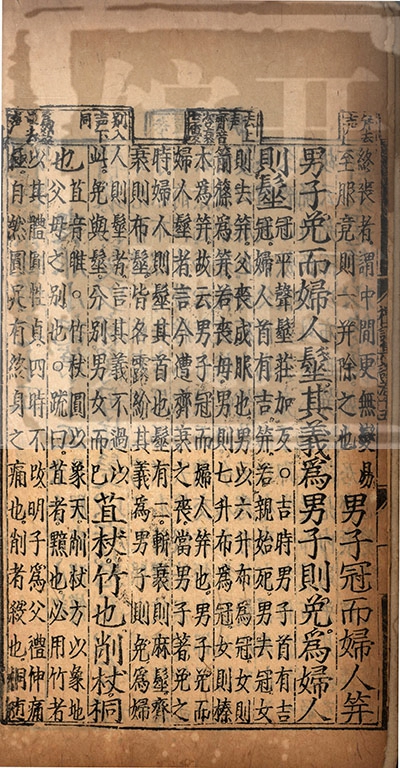 終喪者謂中間更無變易
至服竟則一并除之也
男子冠而婦人笄
男子免而婦人髽其義為男子則免為婦人
則髽
冠平聲髽莊加反○吉時男子首有吉
冠婦人首有吉笄若親始死男去冠女
則去笄父喪成服也男以六升布為冠女則
箭篠為笄若喪母男則七升布為冠女則榛
木為笄故云男子冠而婦人笄也男子免而
婦人髽者言今遭齊衰之喪當男子著免之
時婦人則髽其首也髽有二斬衰則麻髽齊
衰則布髽皆名露紒其義為男子則免為婦
人則髽者言其義不過以
此免與髽分別男女而已
苴杖竹也削杖桐
也
苴音疽○竹杖圓以象天削杖方以象地
父母之別也○疏曰苴者黯也必用竹者
以其體圓性貞四時不改明子為父禮伸痛
極自然圓足有終身之痛也削者殺也桐隨